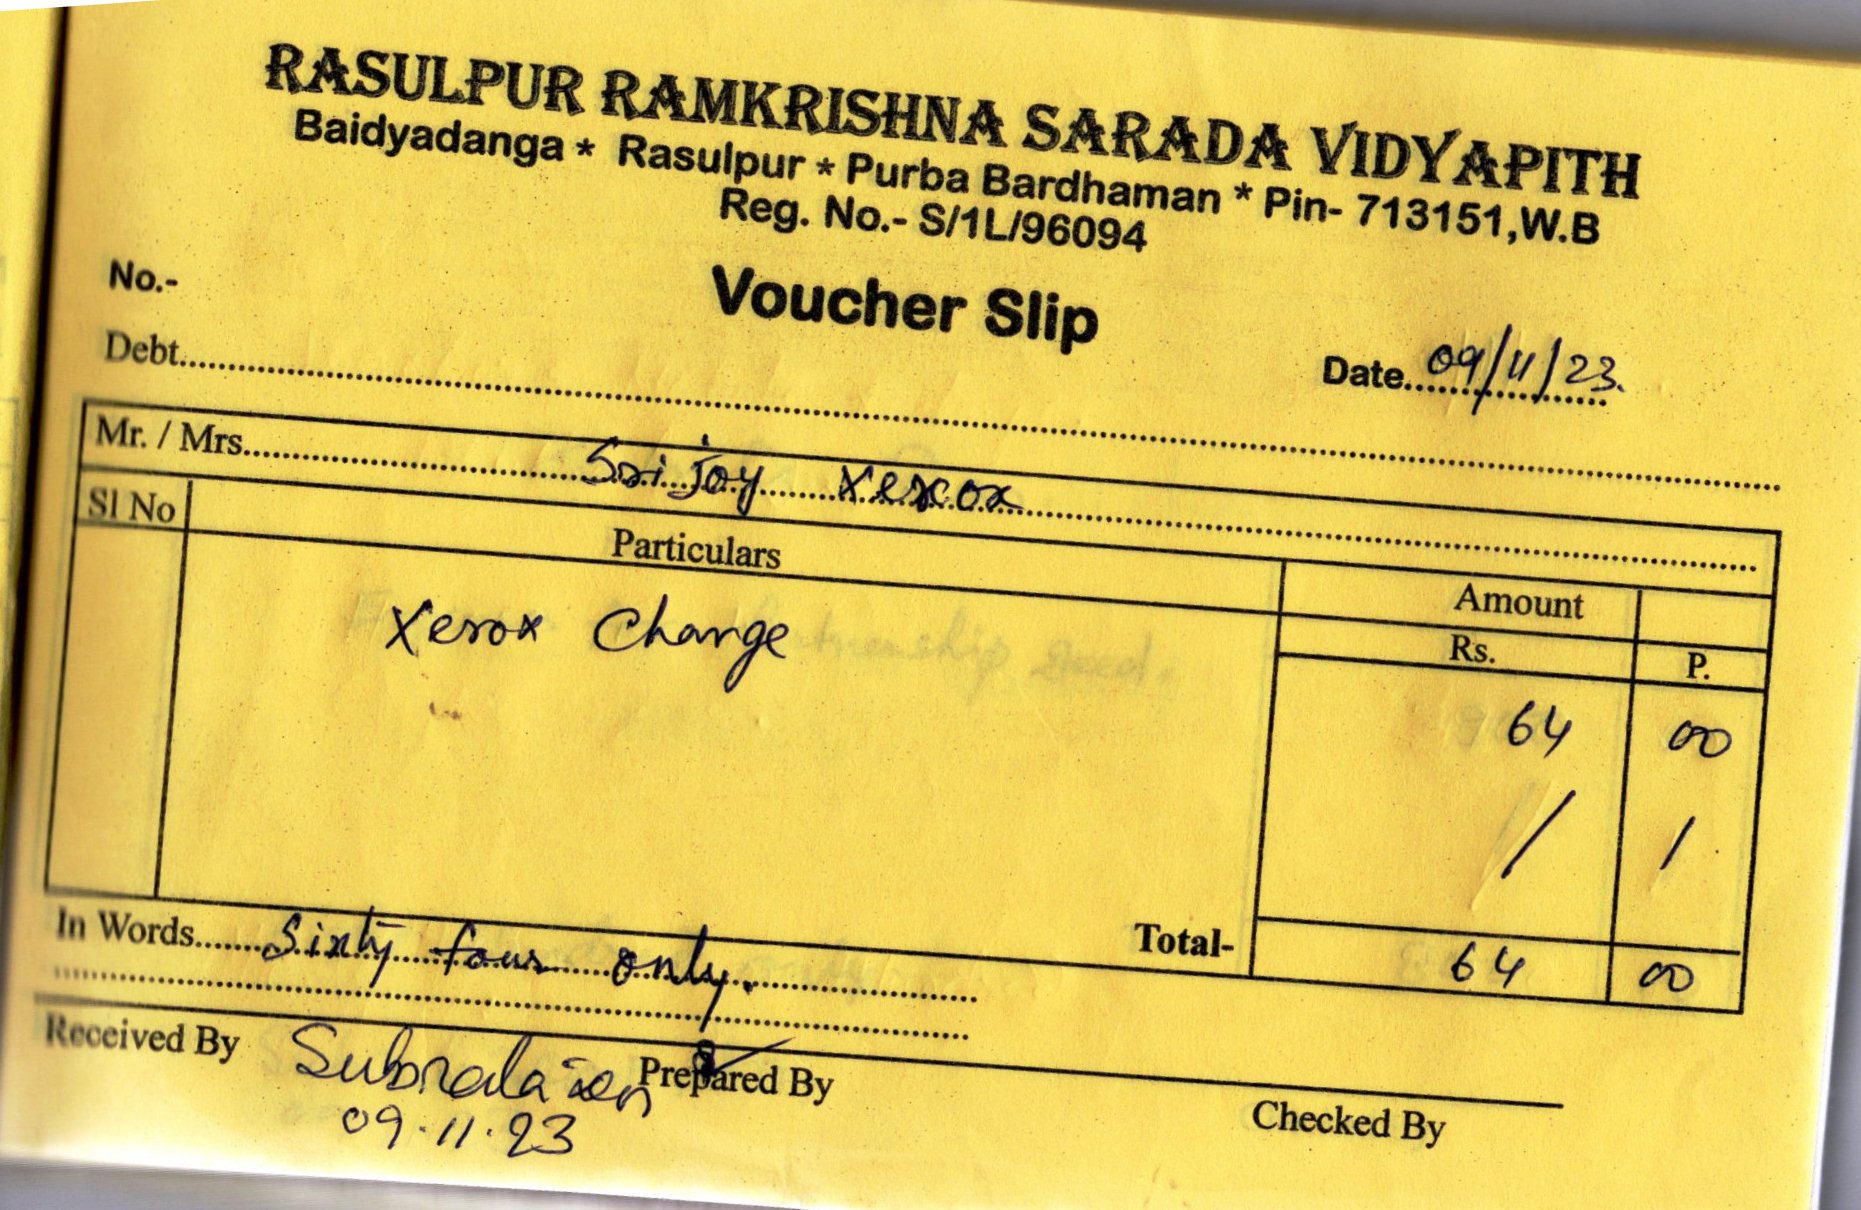 RASULPUR RAMKRISHNA SARADA VIDYAPITH
Baidyadanga * Rasulpur * Purba Bardhaman * Pin- 713151,W.B
Reg. No.- S/1L/96094
No.-
Voucher Slip
Debt
Date 09/11/23.
Mr. / Mrs. Srijoy Xerox
Sl No Particulars Amount
Rs. P.
Xerox Charge 64 00
/ /
In Words Sixty four only. Total- 64 00
Received By Prepared By Checked By
09.11.23